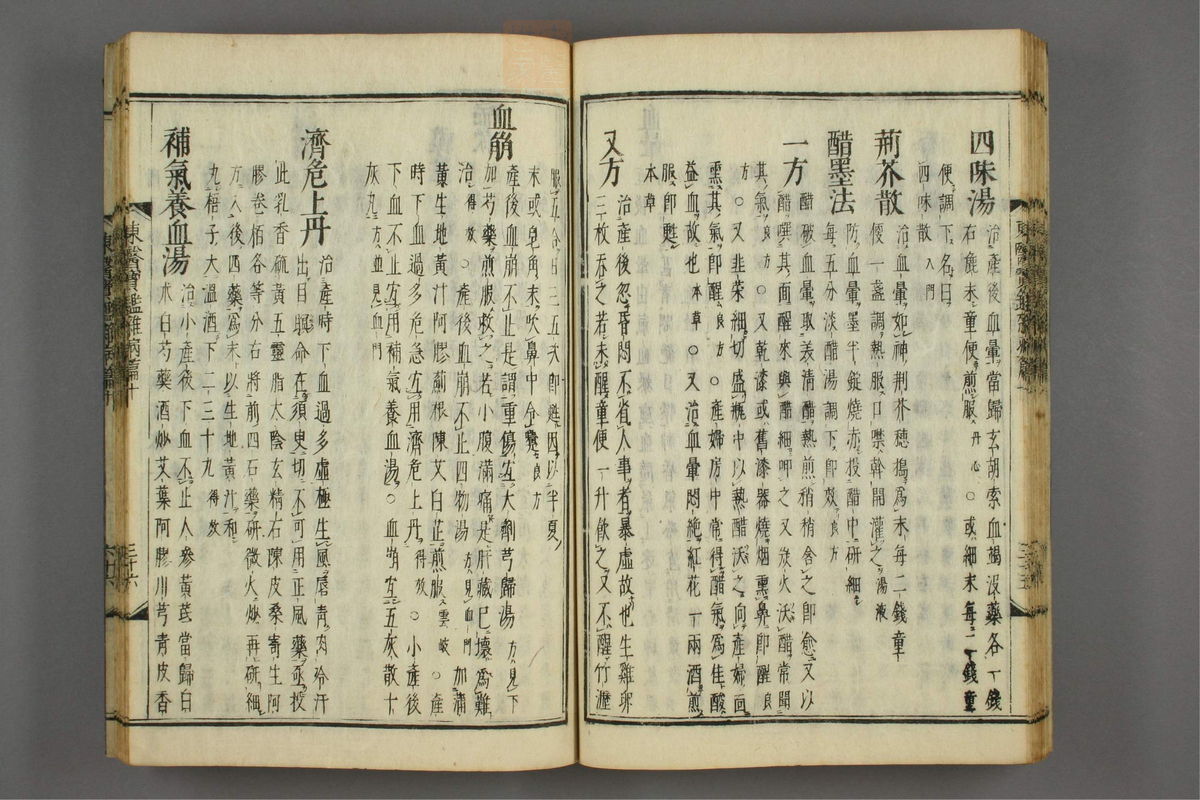 四味湯 治產後血暈當歸玄胡索血竭沒藥各一錢
右麄末童便煎服丹心○或細末每一錢童
便調下名曰
四味散入門
荊芥散 治血暈如神荊芥穗搗爲末每二錢童
便一盞調熱服口噤幹開灌之湯液
醋墨法 防血暈墨半錠燒赤投醋中研細
每五分淡醋湯調下卽效良方
一方 醋破血暈取美清醋熱煎稍稍含之卽愈又以
醋噀其面醒來與醋細呷之又炭火沃醋常聞
其氣良方○又乾漆或舊漆器燒烟熏鼻卽醒良
方○又韭菜細切盛瓶中以熱醋沃之向產婦面
熏其氣卽醒良方○產婦房中常得醋氣爲佳酸
益血故也本草○又治血暈悶絶紅花一兩酒煎
服卽甦
本草
又方 治產後忽昏悶不省人事者暴虛故也生雞卵
三枚吞之若未醒童便一升飲之又不醒竹瀝
服五合日三五次卽甦因以半夏
末或皂角末吹鼻中令嚔良方
血崩 產後血崩不止是謂重傷宜大劑芎歸湯方見下
加芍藥煎服救之若小腹滿痛是肝藏已壞爲難
治得效○產後血崩不止四物湯方見血門加蒲
黃生地黃汁阿膠薊根陳艾白芷煎服雲岐○產
時下血過多危急宜用濟危上丹得效○小產後
下血不止宜用補氣養血湯○血崩宜五灰散十
灰丸二方並見血門
濟危上丹 治產時下血過多虛極生風唇青肉冷汗
出目瞑命在須臾切不可用正風藥亟投
此乳香硫黃五靈脂大陰玄精石陳皮桑寄生阿
膠卷栢各等分右將前四石藥研微火炒再研細
方入後四藥爲末以生地黃汁和
丸梧子大溫酒下二三十丸得效
補氣養血湯 治小產後下血不止人參黃芪當歸白
朮白芍藥酒炒艾葉阿膠川芎青皮香
東醫寶鑑雜病篇十
三十六